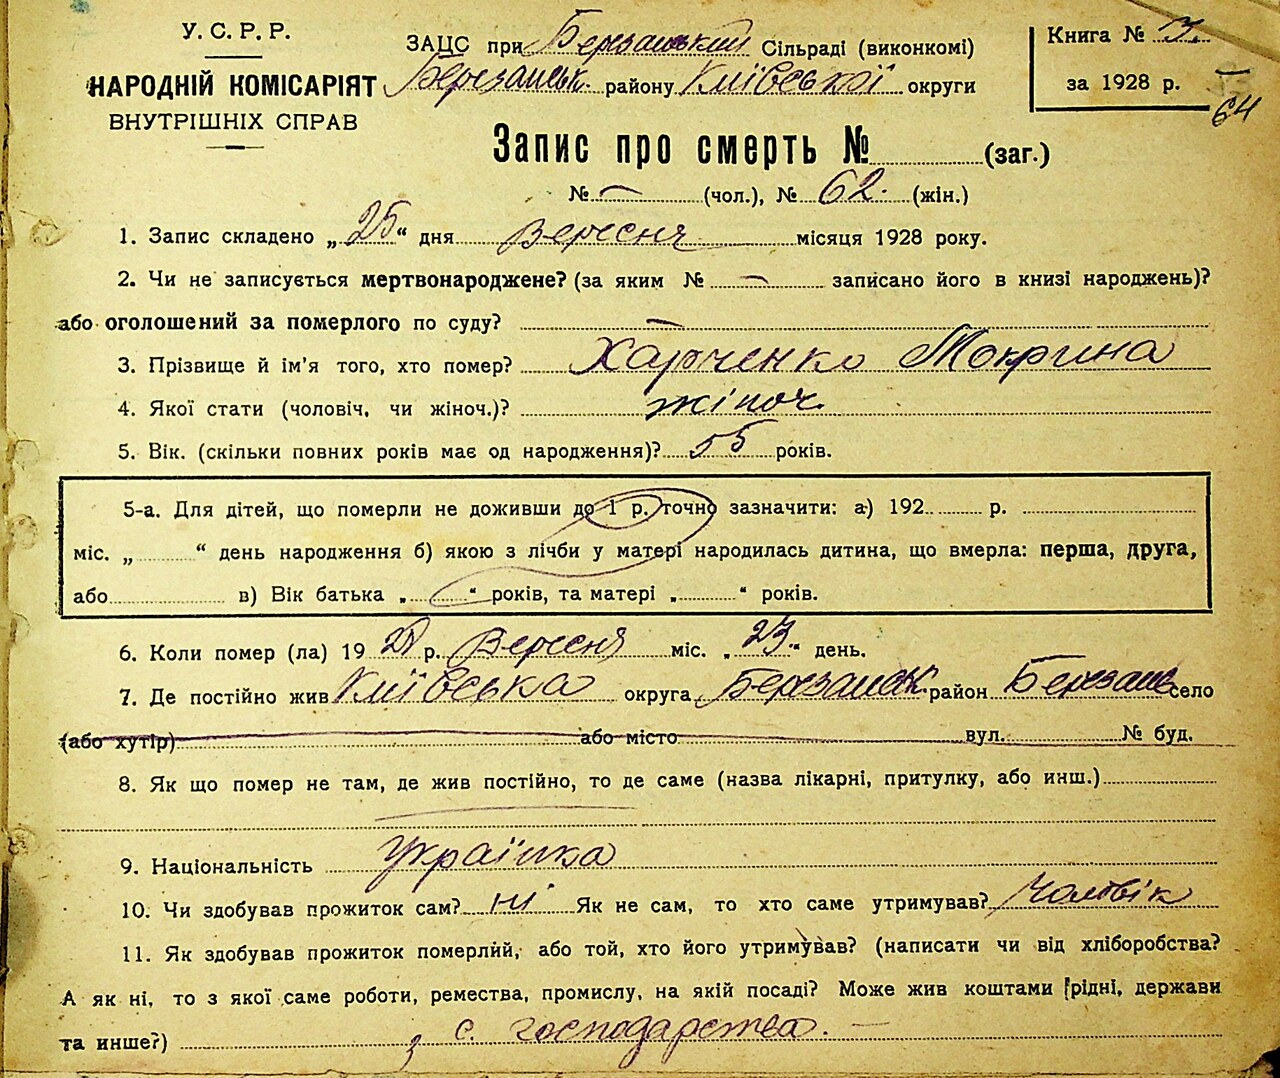 У. С. Р. Р.
НАРОДНІЙ КОМІСАРІЯТ
ВНУТРІШНІХ СПРАВ
ЗАЦС при Березанський Сільраді (виконкомі)
Березанськ. району Київської округи
Книга №
за 1928 р.
64
Запис про смерть № (заг.)
№ — (чол.), № 62. (жін.)
1. Запис складено „25“ дня Вересня місяця 1928 року.
2. Чи не записується мертвонароджене? (за яким № — записано його в книзі народжень)?
або оголошений за померлого по суду? —
3. Прізвище й ім'я того, хто помер? Харченко Мокрина
4. Якої стати (чоловіч. чи жіноч.)? жіноч.
5. Вік. (скільки повних років має од народження)? 55 років.
5-а. Для дітей, що померли не доживши до 1 р. точно зазначити: а) 192 р.
міс. „ “ день народження б) якою з лічби у матері народилась дитина, що вмерла: перша, друга,
або в) Вік батька „ “ років, та матері „ “ років.
6. Коли помер (ла) 19 28 р. Вересня міс. „23.“ день.
7. Де постійно жив Київська округа Березанськ район Березань село
(або хутір) або місто вул. № буд.
8. Як що помер не там, де жив постійно, то де саме (назва лікарні, притулку, або инш.)
9. Національність Українка
10. Чи здобував прожиток сам? ні Як не сам, то хто саме утримував? Чоловік
11. Як здобував прожиток померлий, або той, хто його утримував? (написати чи від хліборобства?
А як ні, то з якої саме роботи, ремества, промислу, на якій посаді? Може жив коштами рідні, держави
та инше?) з с. господарства. —